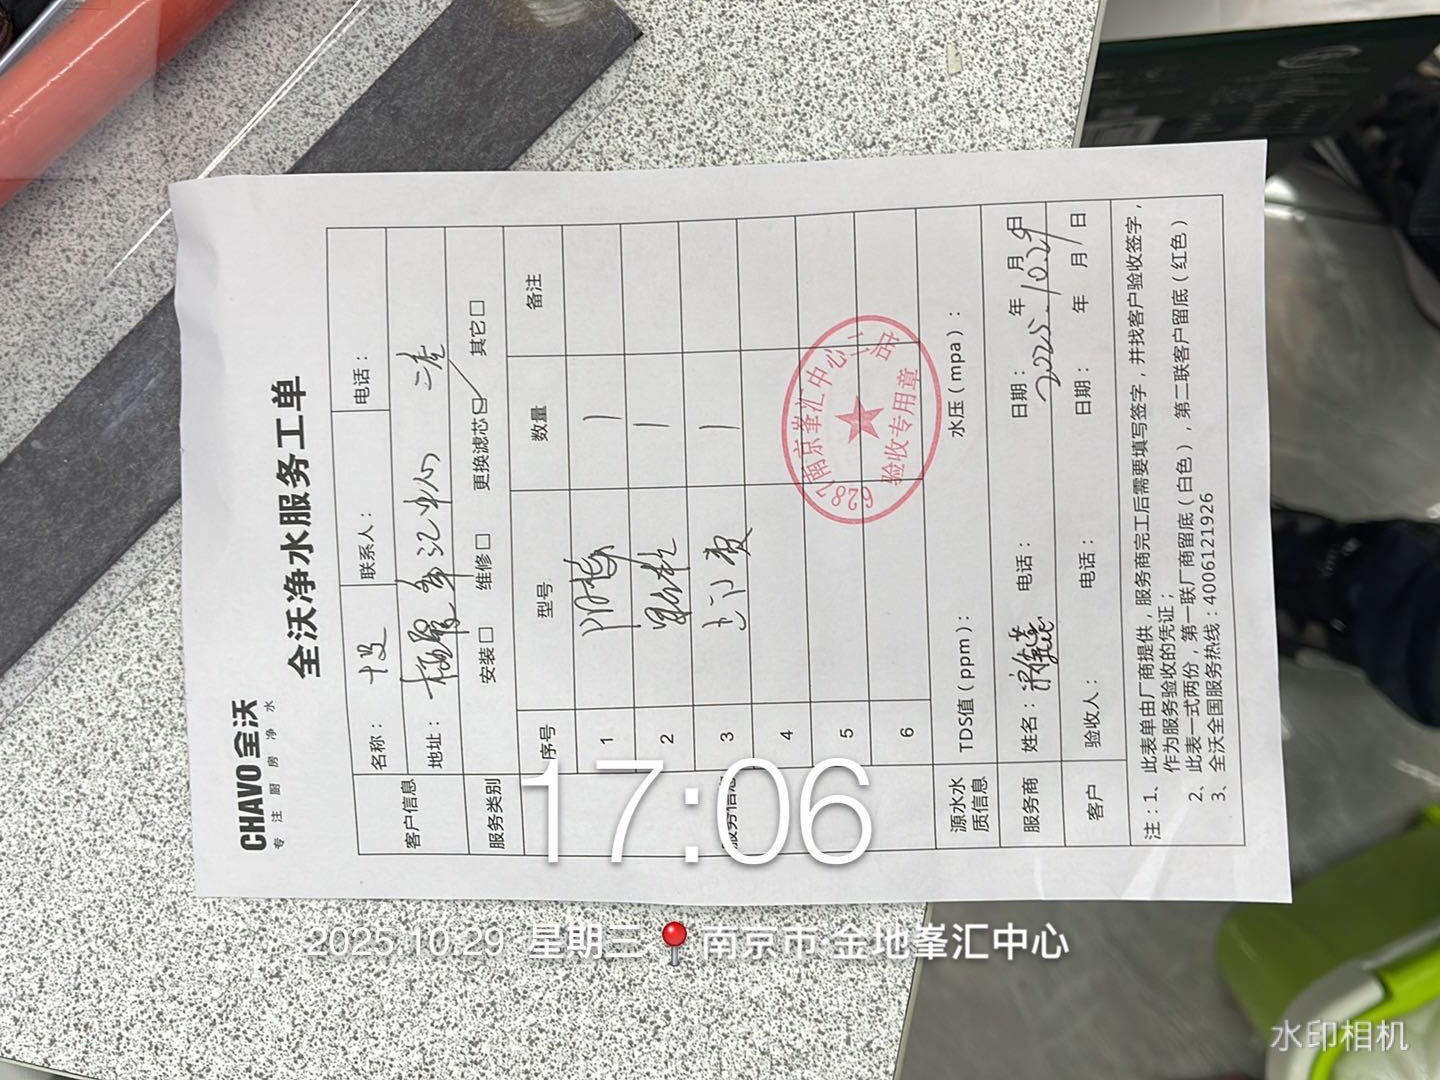 CHAVO 全沃
专注厨房净水
全沃净水服务工单
客户信息 名称： 联系人： 电话：
地址： 峯汇中心
服务类别 安装□ 维修□ 更换滤芯☑ 其它□
服务信息 序号 型号 数量 备注
1 1
2 1
3 上门费 1
4
5
6
6287南京峯汇中心
验收专用章
源水水质信息 TDS值（ppm）： 水压（mpa）：
服务商 姓名： 电话： 日期： 年 月 日 2025.10.29
客户 验收人： 电话： 日期： 年 月 日
注：1、此表单由厂商提供，服务商完工后需要填写签字，并找客户验收签字，
作为服务验收的凭证；
2、此表一式两份，第一联厂商留底（白色），第二联客户留底（红色）
3、全沃全国服务热线：4006121926
17:06
2025.10.29 星期三 南京市·金地峯汇中心
水印相机